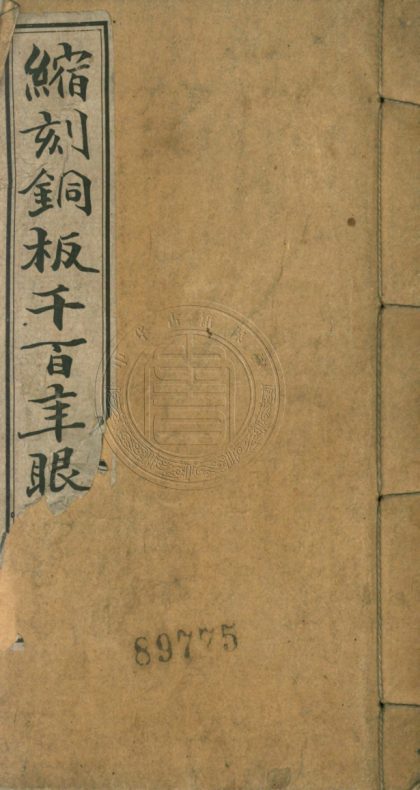 縮刻銅板千百年眼
89775